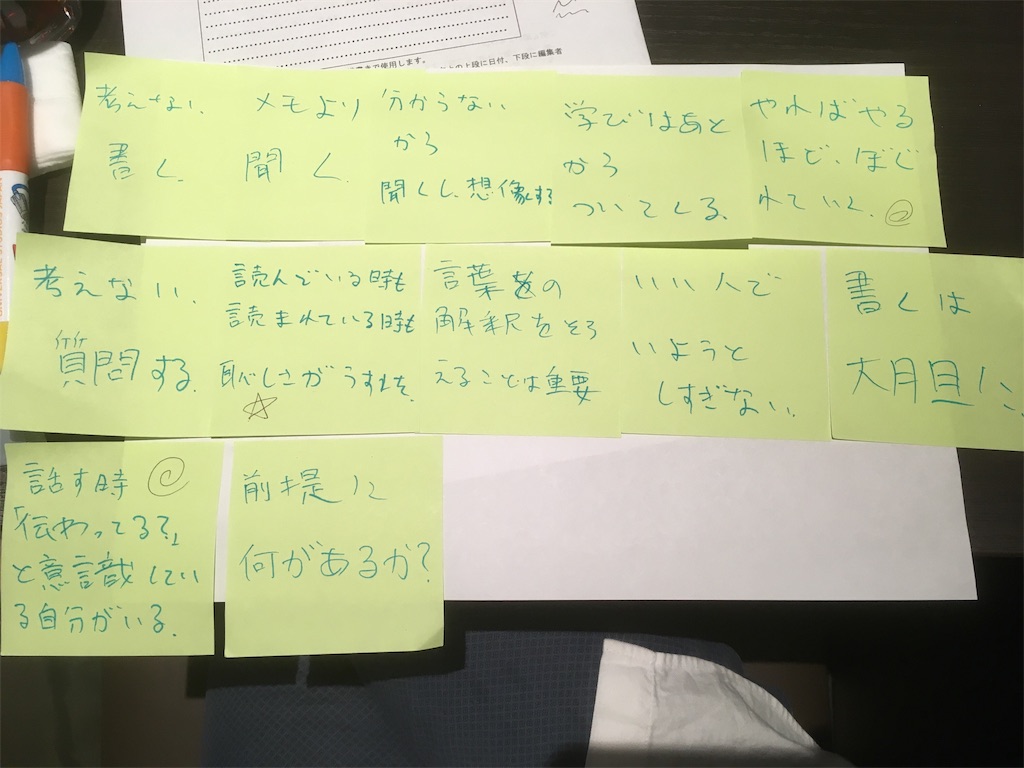 書きで使用します。
上の上段に日付、下段に編集者
考えない、
書く。
メモより
聞く。
分からない
から
聞くし、想像する
学びはあと
から
ついてくる。
やればやる
ほど、ほぐ
れていく。
考えない、
質問する。
読んでいる時も
読まれている時も
恥しさがうすれた。
言葉の
解釈をそろ
えることは重要
いい人で
いようと
しすぎない。
書くは
大胆に。
話す時
「伝わってる?」
と意識してい
る自分がいる。
前提に
何があるか?